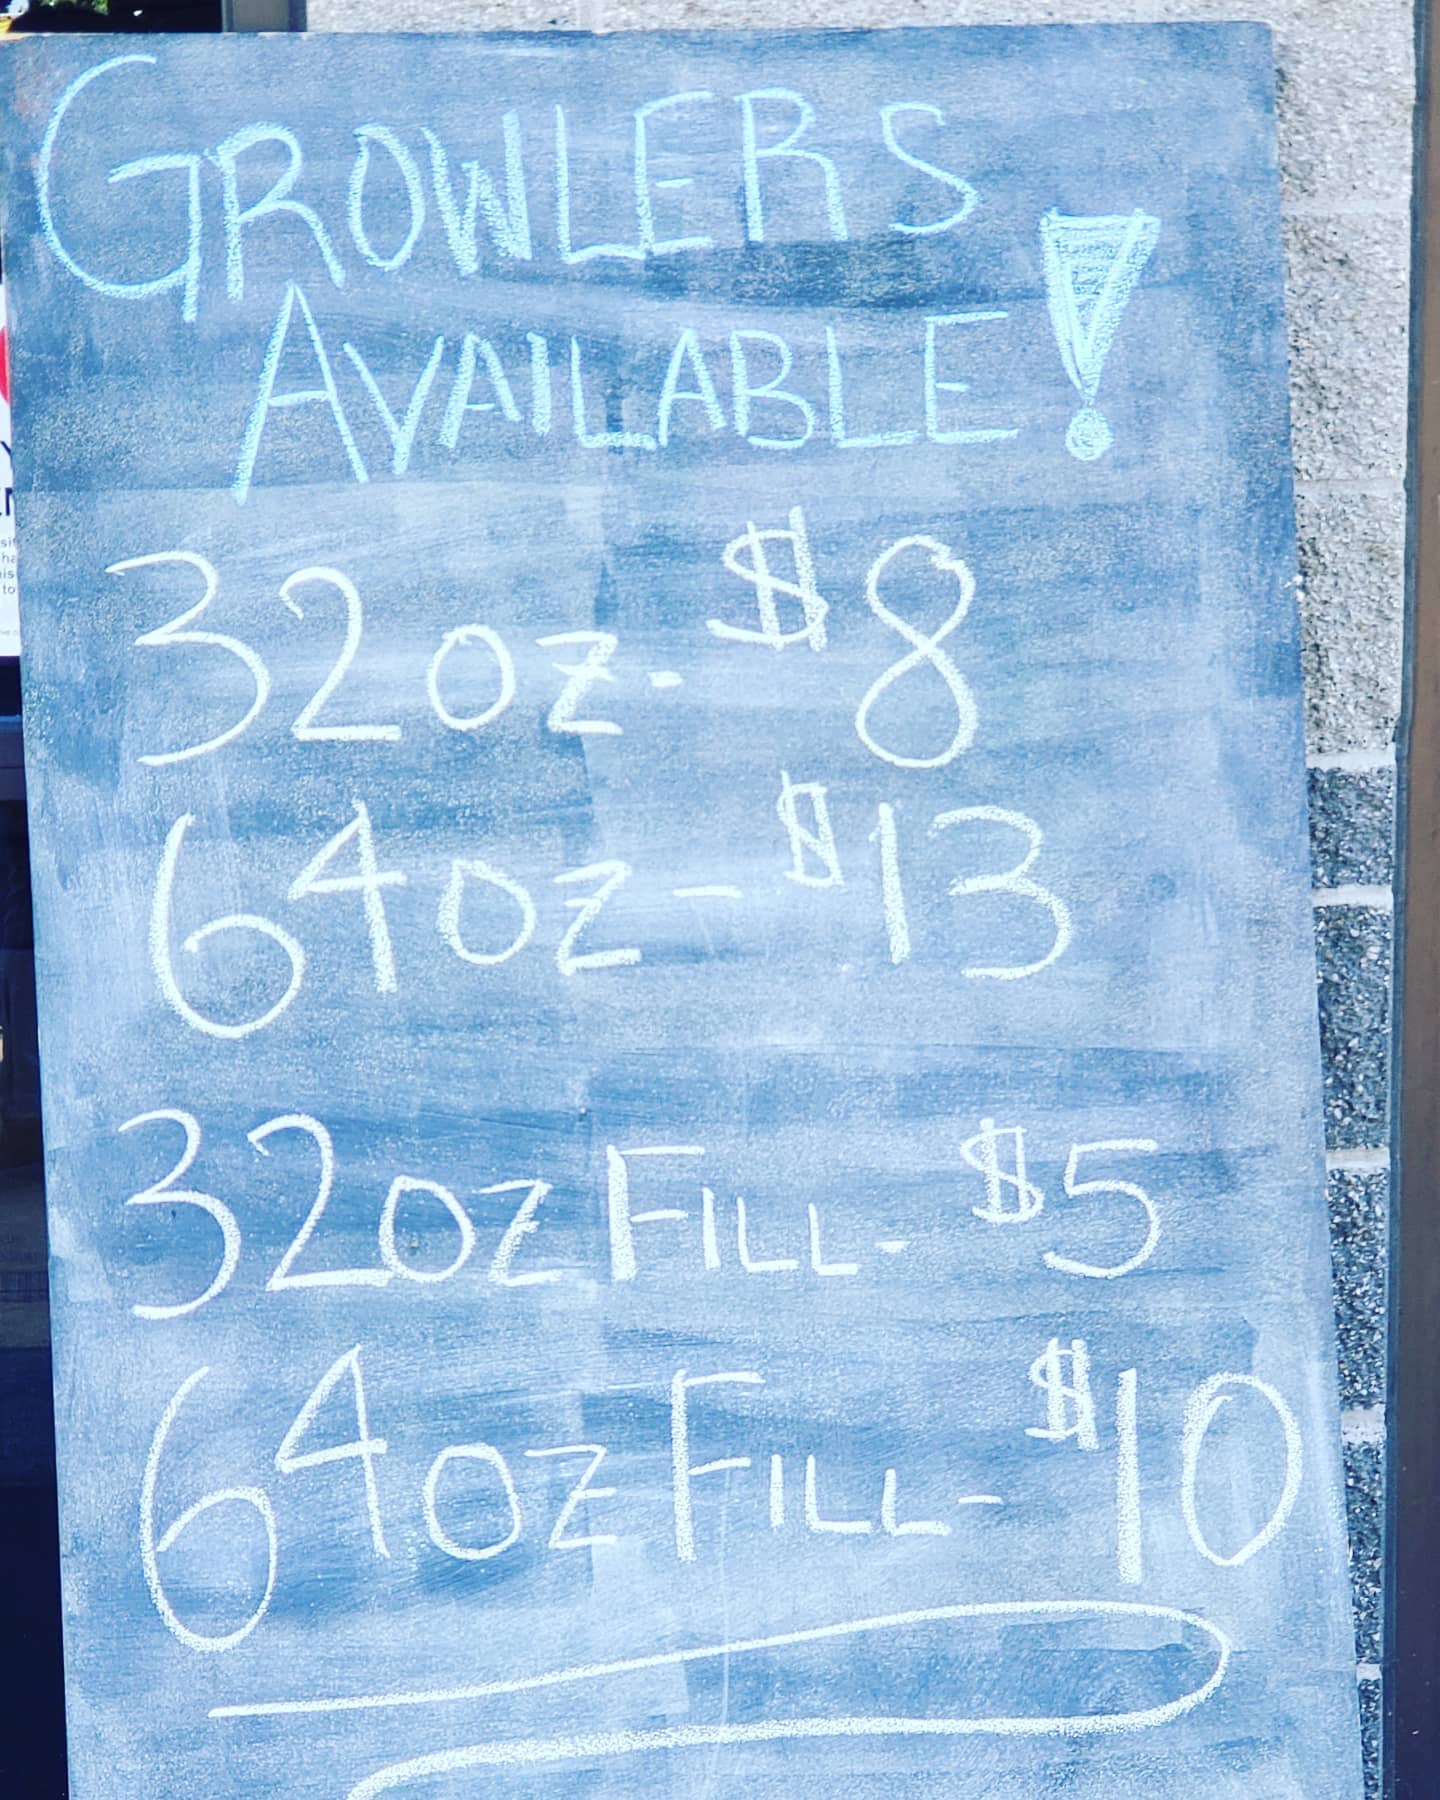 GROWLERS
AVAILABLE!
32oz- $8
64oz- $13
32oz FILL- $5
64oz FILL- $10